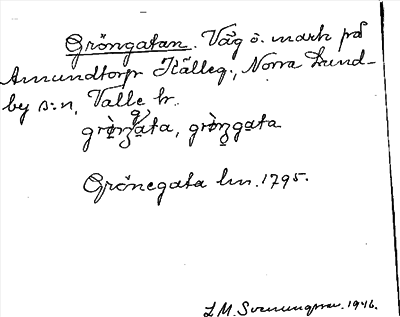 Gröngatan. Väg o. mark på
Amundtorps Källeg., Norra Lund-
by s:n, Valle hr.
grö̀nga̱ta, grö̀nga̱ta
Grönegata lm. 1795.
L M. Svenungsson. 1946.